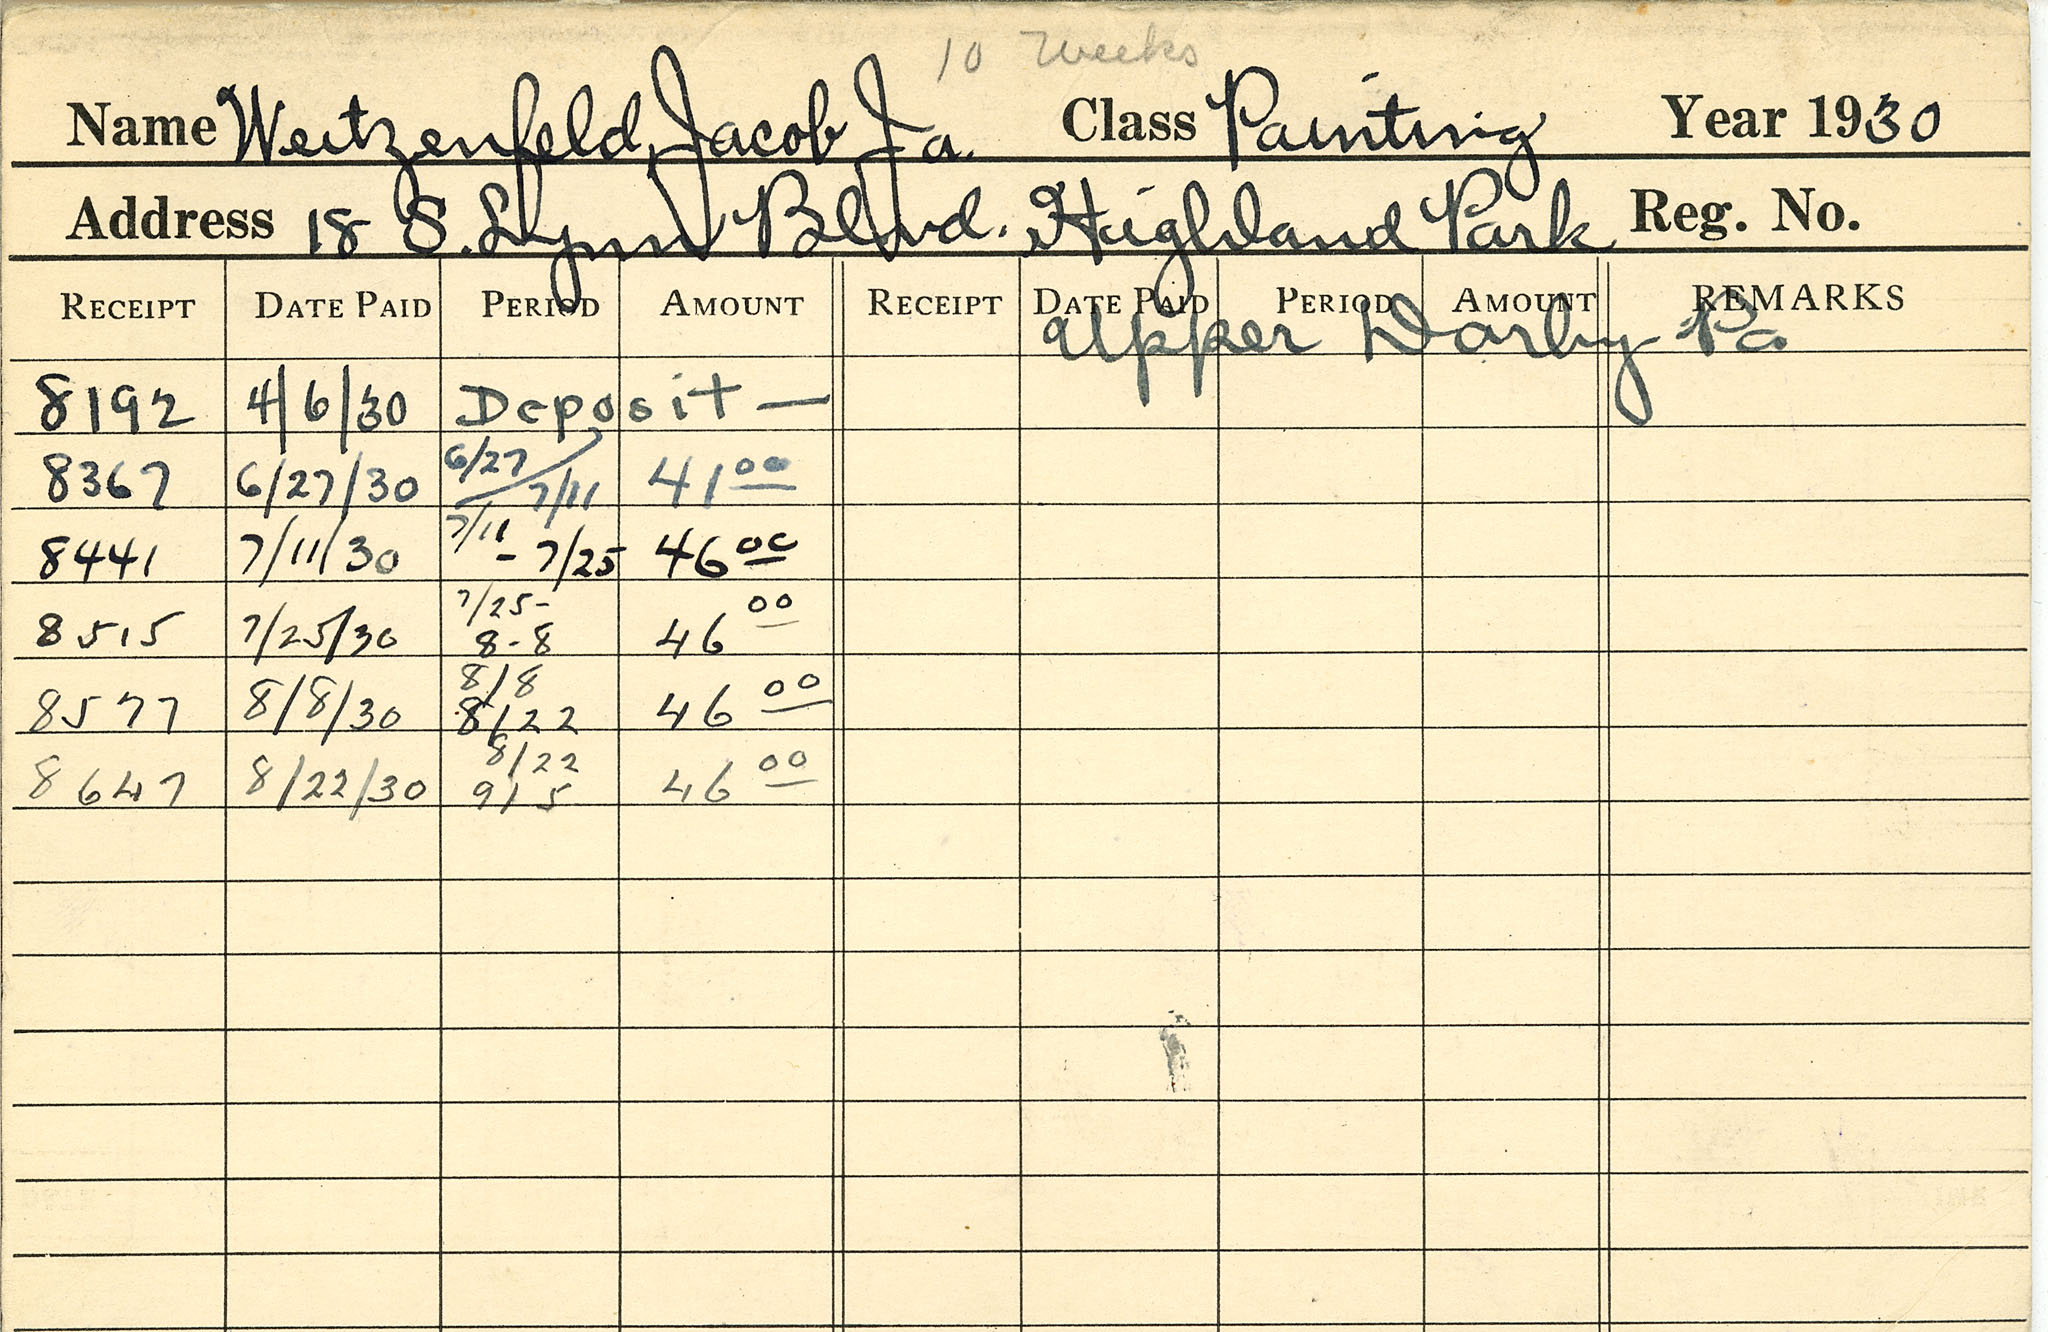 10 Weeks
Name Weitzenfeld, Jacob Ja. Class Painting Year 1930
Address 18 S. Lynn Blvd. Highland Park Reg. No.
RECEIPT DATE PAID PERIOD AMOUNT RECEIPT DATE PAID PERIOD AMOUNT REMARKS
Upper Darby Pa
8192 4/6/30 Deposit —
8367 6/27/30 6/27 / 7/11 41 00
8441 7/11/30 7/11 - 7/25 46 00
8515 7/25/30 7/25- 8-8 46 00
8577 8/8/30 8/8 8/22 46 00
8647 8/22/30 8/22 9/5 46 00